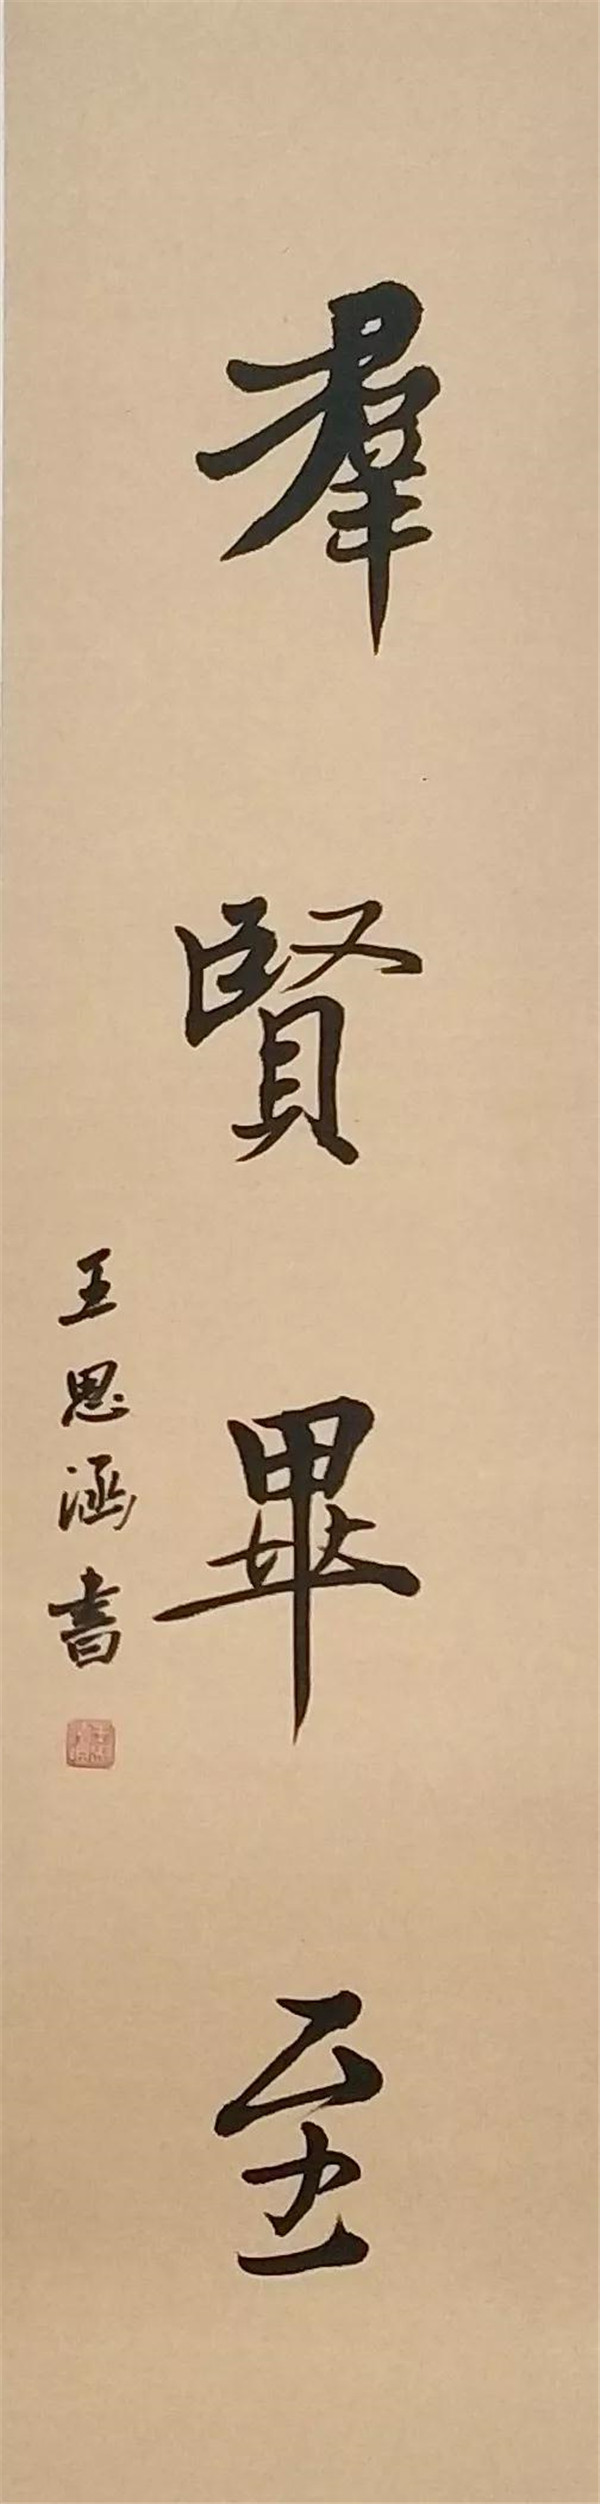 羣賢畢至
王思涵書